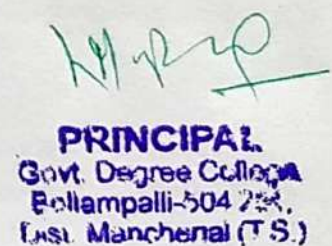 PRINCIPAL
Govt. Degree College
Bellampalli-504
Dist. Manchenal (T.S.)